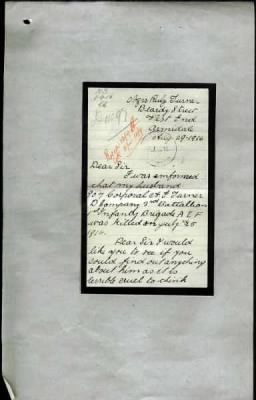 Mrs Ruby Turner
Beardy Street
West End
Armidale
Aug 29. 1916
Dear Sir
I was informed
that my husband
Corporal A. F. Turner
D Company 3rd Battallion
1st Infandy Brigade A I F
was killed on July 25
1916.
Dear Sir I would
like you to see if you
could find out anything
about him as it is
terrible cruel to think